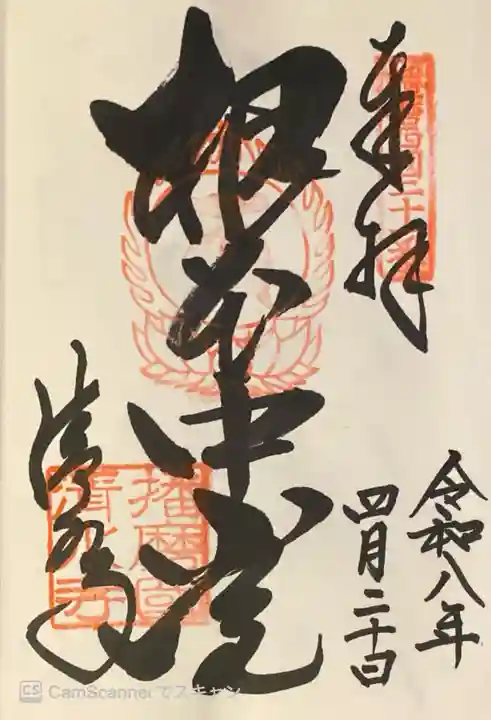 奉拝
令和八年
四月二十日
根本中堂
清水寺
播磨国
清水寺
CS CamScannerでスキャン